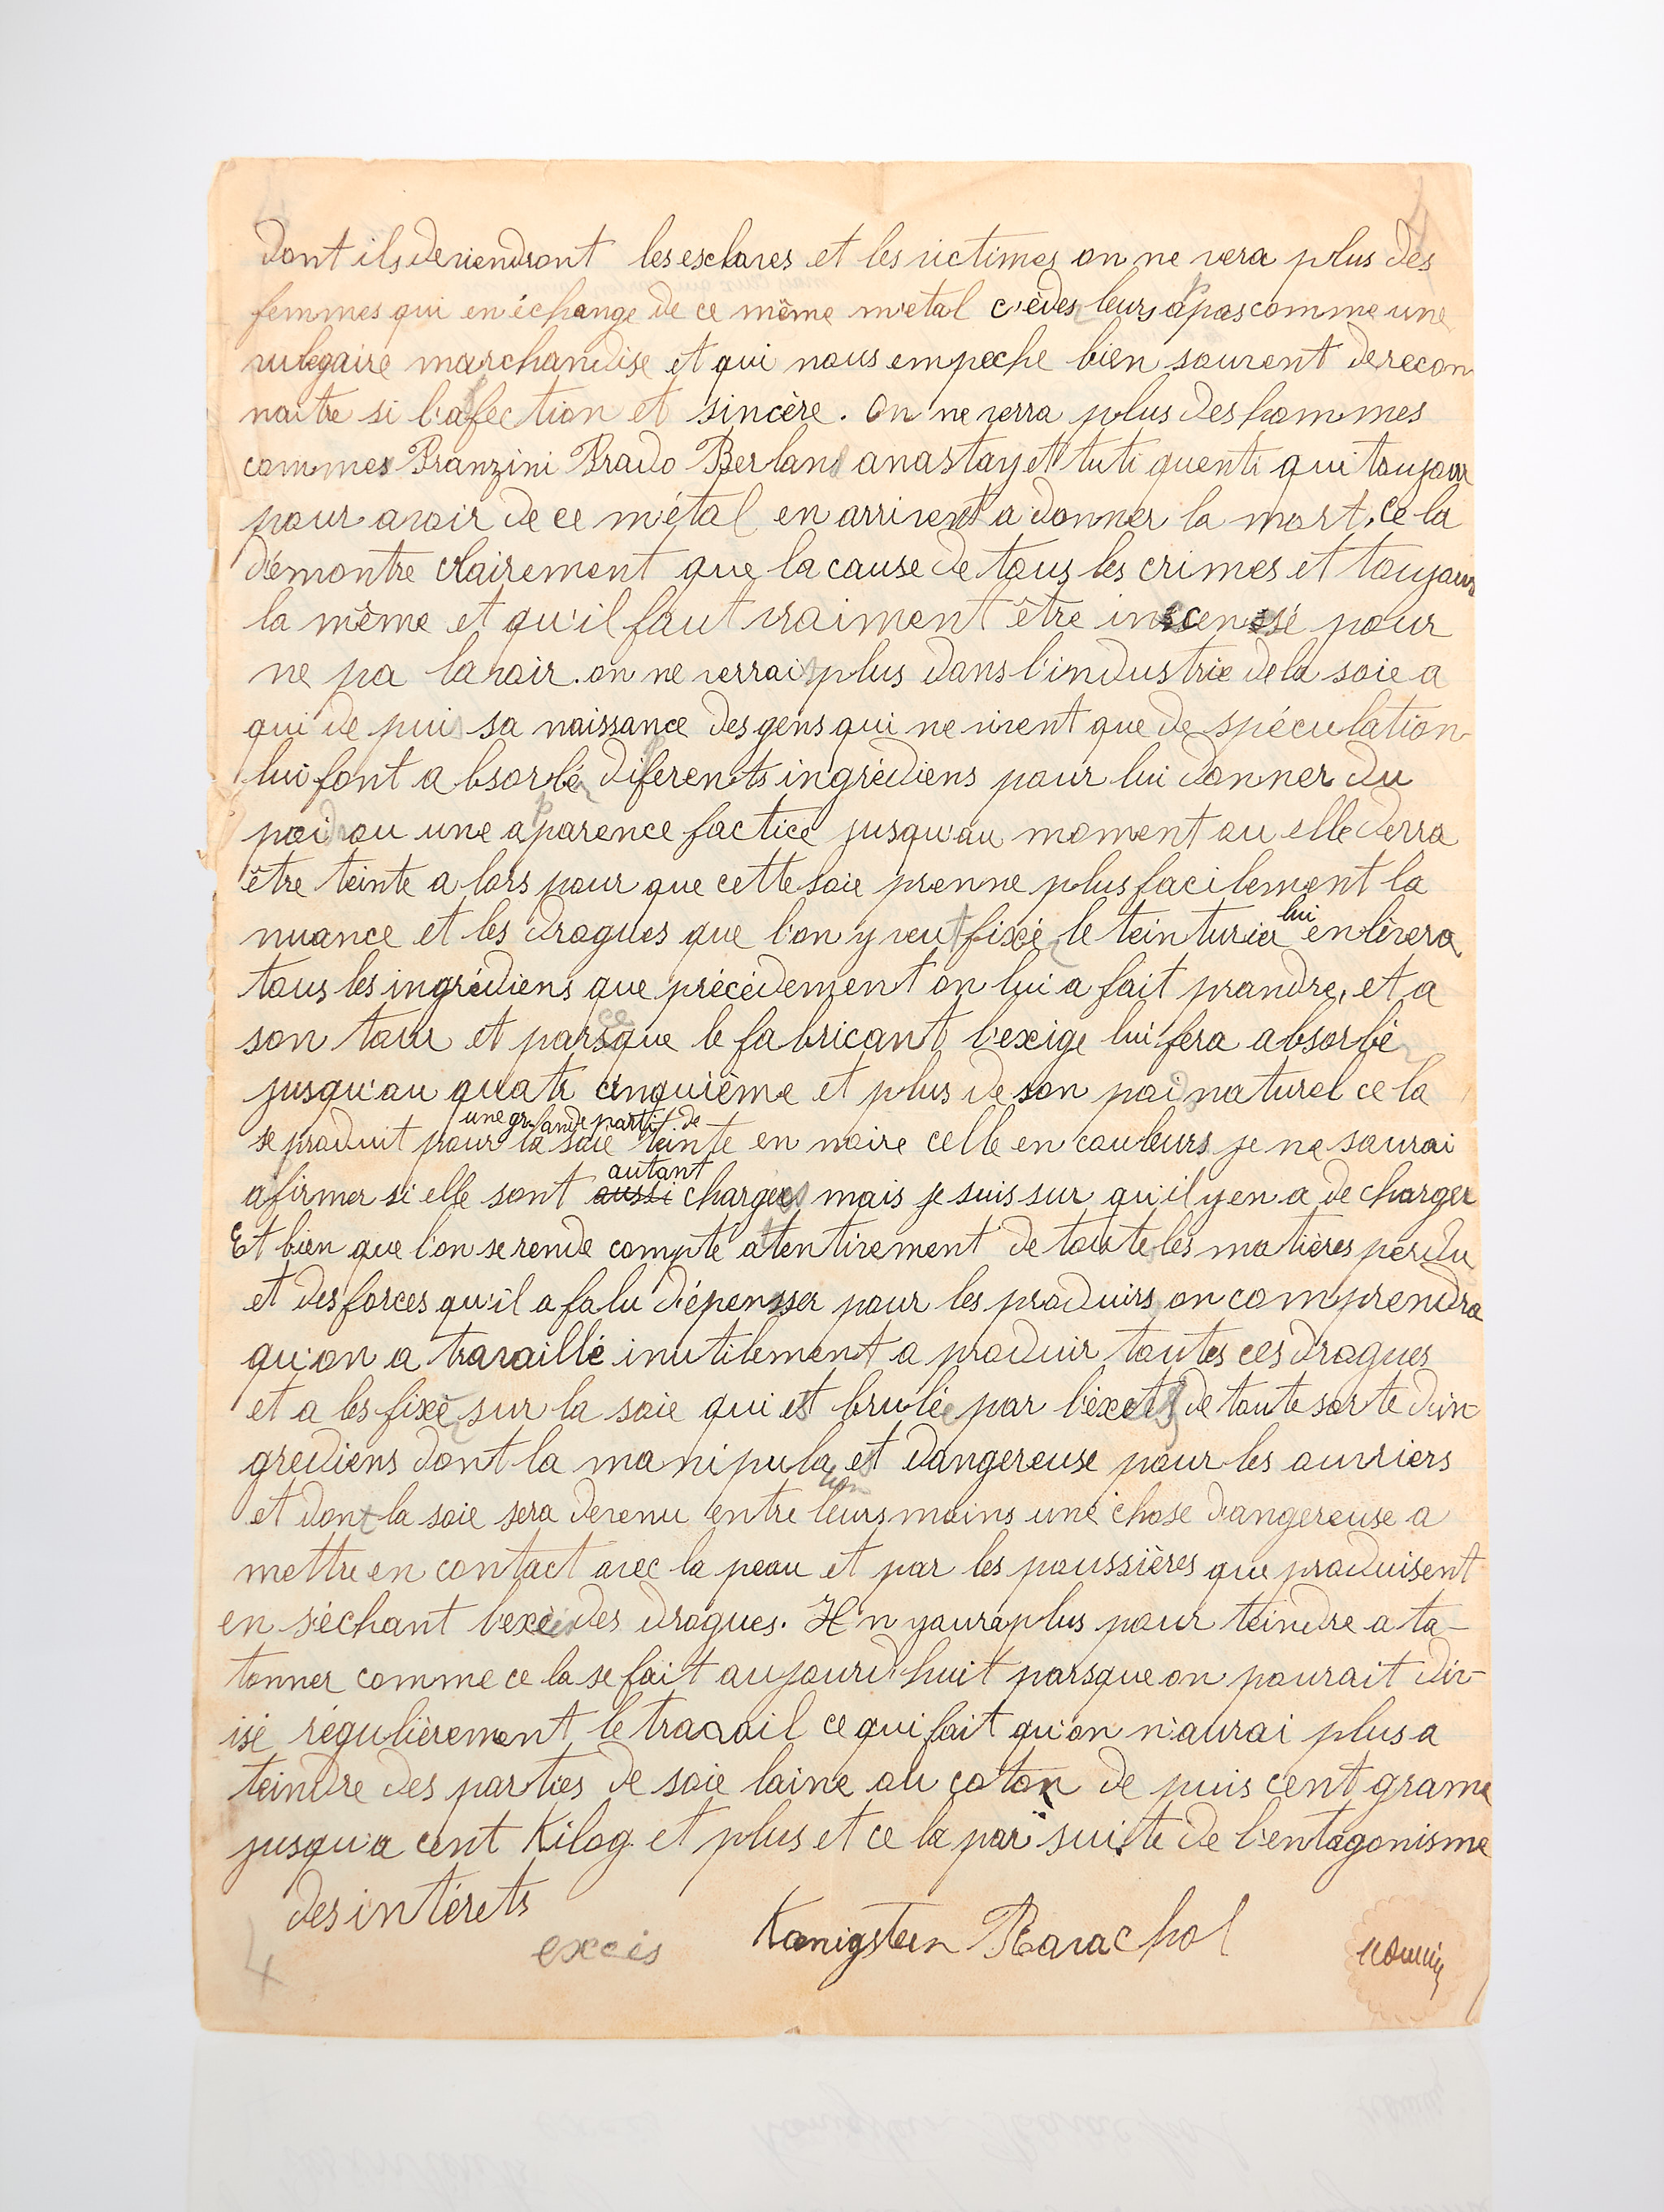 dont ils deviendront les esclaves et les victimes on ne vera plus des
femmes qui en échange de ce même métal cèdes leurs apas comme une
vulegaire marchandise et qui nous empeche bien souvent de recon
naitre si l'afection et sincère. On ne verra plus des hommes
commes Pranzini Prado Berland anastay et tuti quenti qui toujour
pour avoir de ce métal en arrivent a donner la mort, ce la
démontre clairement que la cause de tous les crimes et toujours
la même et qu'il faut vraiment être inscensé pour
ne pa la voir. on ne verrai plus dans l'industrie de la soie a
qui de puis sa naissance des gens qui ne vivent que de spéculation
lui font a bsorbé diferents ingrédiens pour lui donner du
poid ou une apparence factice jusqu'au moment ou elle devra
être teinte a lors pour que cette soie prenne plus facilement la
nuance et les drogues que l'on y veut fixé le teinturier lui enlèvera
tous les ingrédiens que précédement on lui a fait prandre, et a
son tour et parsque le fabricant l'exige lui fera absorbé
jusqu'au quatr cinquième et plus de son poid naturel ce la
se produit pour une grande parti de la soie teinte en noire celle en couleurs je ne saurai
afirmer si elle sont aussi autant chargées mais je suis sur qu'il y en a de charger
Et bien que l'on se rende compte attentivement de toute les matières perdu
et des forces qu'il a falu dépensser pour les produirs on comprendra
qu'on a travaillé inutilement a produir toutes ces drogues
et a les fixé sur la soie qui est brulée par l'éxets de toute sorte d'in-
grediens dont la manipulation est dangereuse pour les ouvriers
et dont la soie sera devenu entre leurs mains une chose dangereuse a
mettre en contact avec la peau et par les poussières que produisent
en séchant l'exèis des drogues. Il n y aura plus pour teindre a ta-
tonner comme ce la se fait aujourd'huit parsque on pourait div-
isé régulièrement le travail ce qui fait qu'on n'aurai plus a
teindre des parties de soie laine ou coton de puis cent grame
jusqu'a cent Kilog. et plus et ce la par suite de l'entagonisme
des intérets
excès
Kœnigstein Ravachol
4